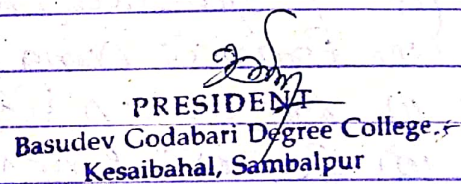 PRESIDENT
Basudev Godabari Degree College
Kesaibahal, Sambalpur